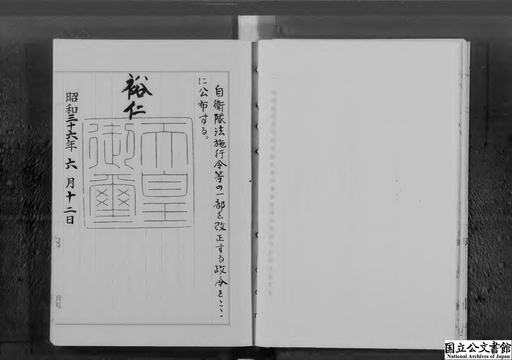 自衛隊法施行令等の一部を改正する政令をここ
に公布する。
裕仁
天皇
御璽
昭和三十六年六月十二日
国立公文書館
National Archives of Japan